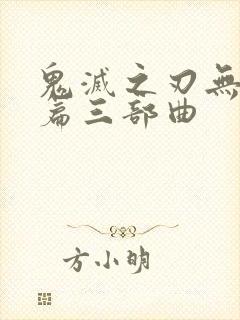 鬼滅之刃無
篇三部曲
方小明